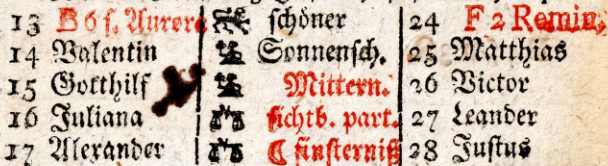 13 B 6 s. Aurore schöner 24 F 2 Remin.
14 Valentin Sonnensch. 25 Matthias
15 Gotthilf Mittern. 26 Victor
16 Juliana sichtb. part. 27 Leander
17 Alexander ☾ finsterniß 28 Justus